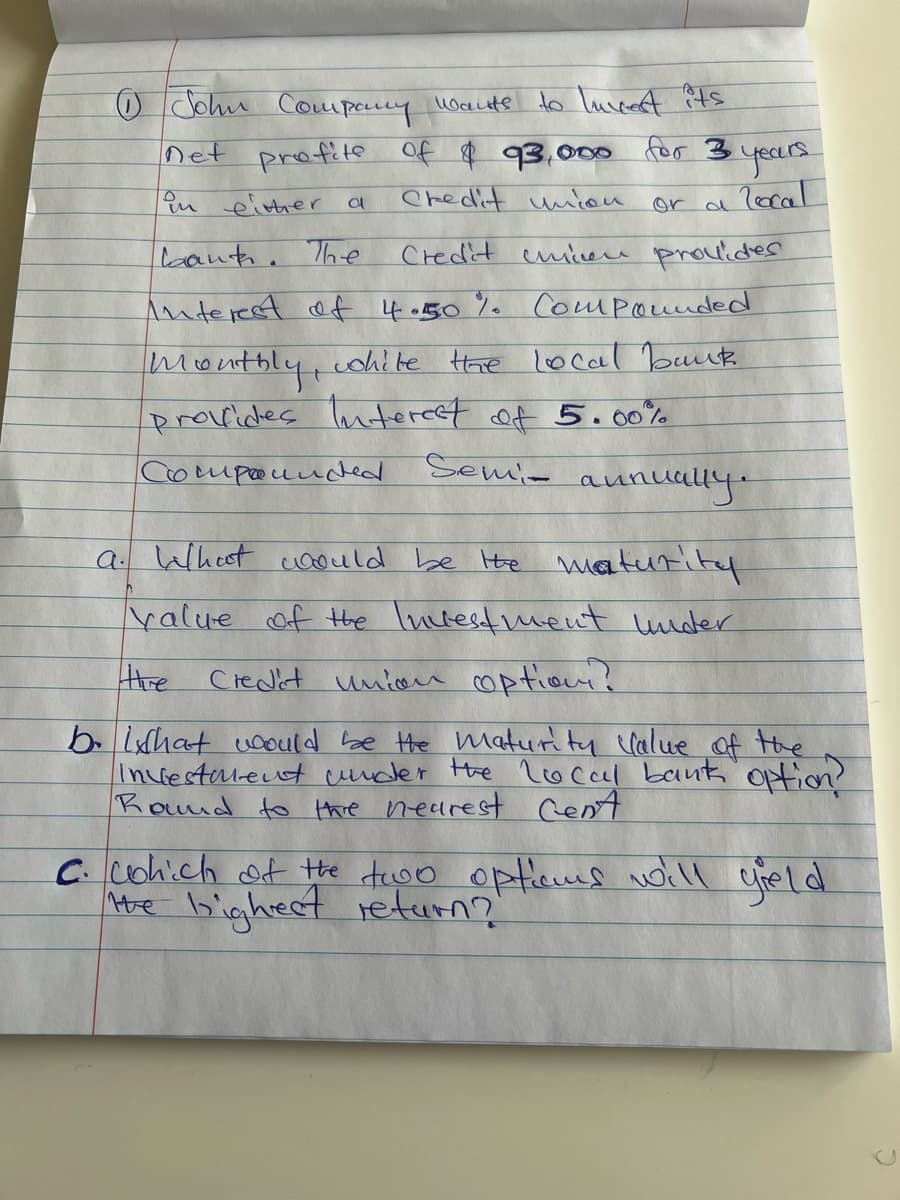 ① John Company wants to Invest its
net profits of $ 93,000 for 3 years
in either a Credit union or a local
bank. The Credit union provides
Interest of 4.50 % Compounded
monthly, while the local bank
provides Interest of 5.00%
Compounded Semi- annually.
a. What would be the maturity
value of the Investment under
the Credit union option?
b. What would be the maturity value of the
Investment under the local bank option?
Round to the nearest Cent
c. which of the two options will yield
the highest return?